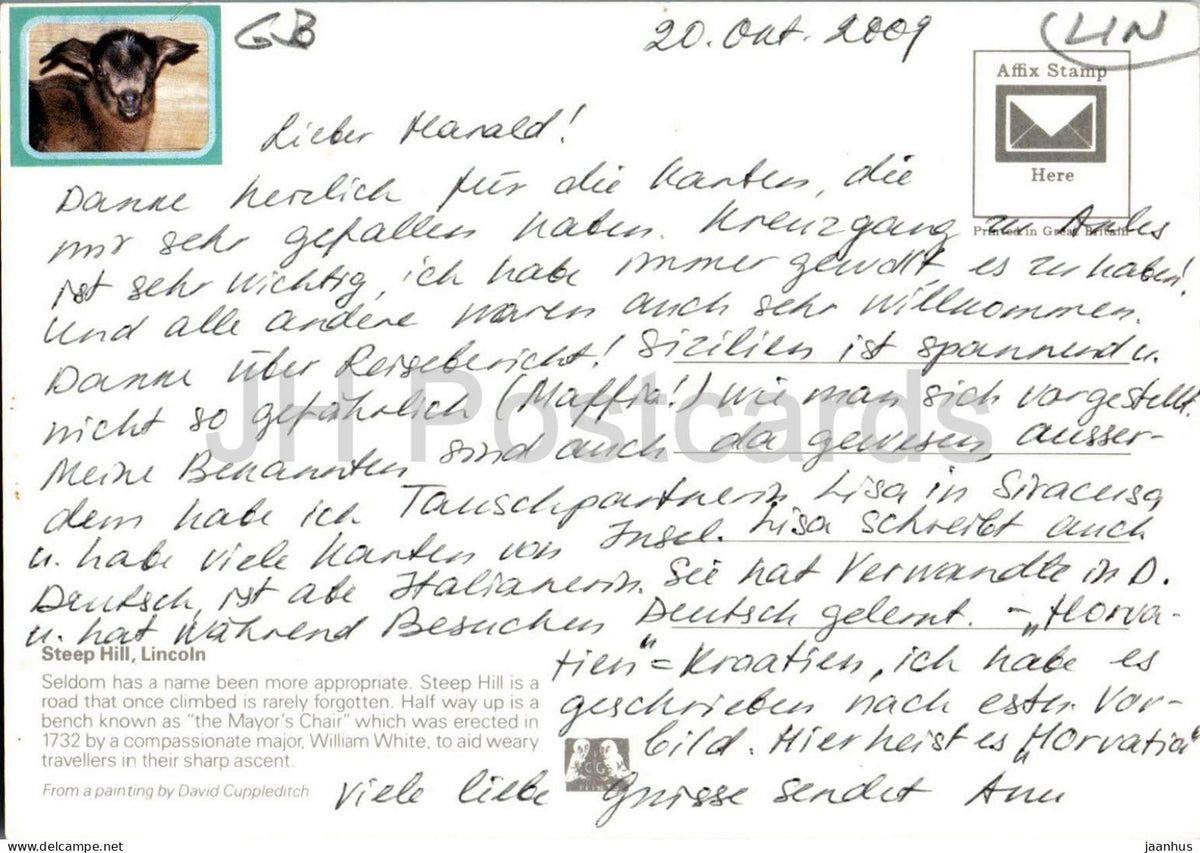 GB
20. Okt. 2009
LIN
Affix Stamp
Here
Printed in Great Britain
Lieber Harald!
Danke herzlich für die Karten, die
mir sehr gefallen haben. Kreuzgang zu Arles
ist sehr wichtig, ich habe immer gewollt es zu haben!
Und alle andere waren auch sehr willkommen.
Danke über Reisebericht! Sizilien ist spannend u.
nicht so gefährlich (Maffia!) wie man sich vorgestellt.
Meine Bekannten sind auch da gewesen ausser-
dem habe ich Tauschpartnerin Lisa in Siracusa
u. habe viele Karten von Insel. Lisa schreibt auch
Deutsch, ist abe Italianerin. Sie hat Verwandte in D.
u. hat während Besuchen Deutsch gelernt. – „Horva-
tien“ = Kroatien, ich habe es
geschrieben nach estn. Vor-
bild. Hier heist es „Horvatia“
Viele liebe Grüsse sendet Anu
Steep Hill, Lincoln
Seldom has a name been more appropriate. Steep Hill is a
road that once climbed is rarely forgotten. Half way up is a
bench known as “the Mayor's Chair” which was erected in
1732 by a compassionate major, William White, to aid weary
travellers in their sharp ascent.
From a painting by David Cuppleditch
JH Postcards
jaanhus
www.delcampe.net